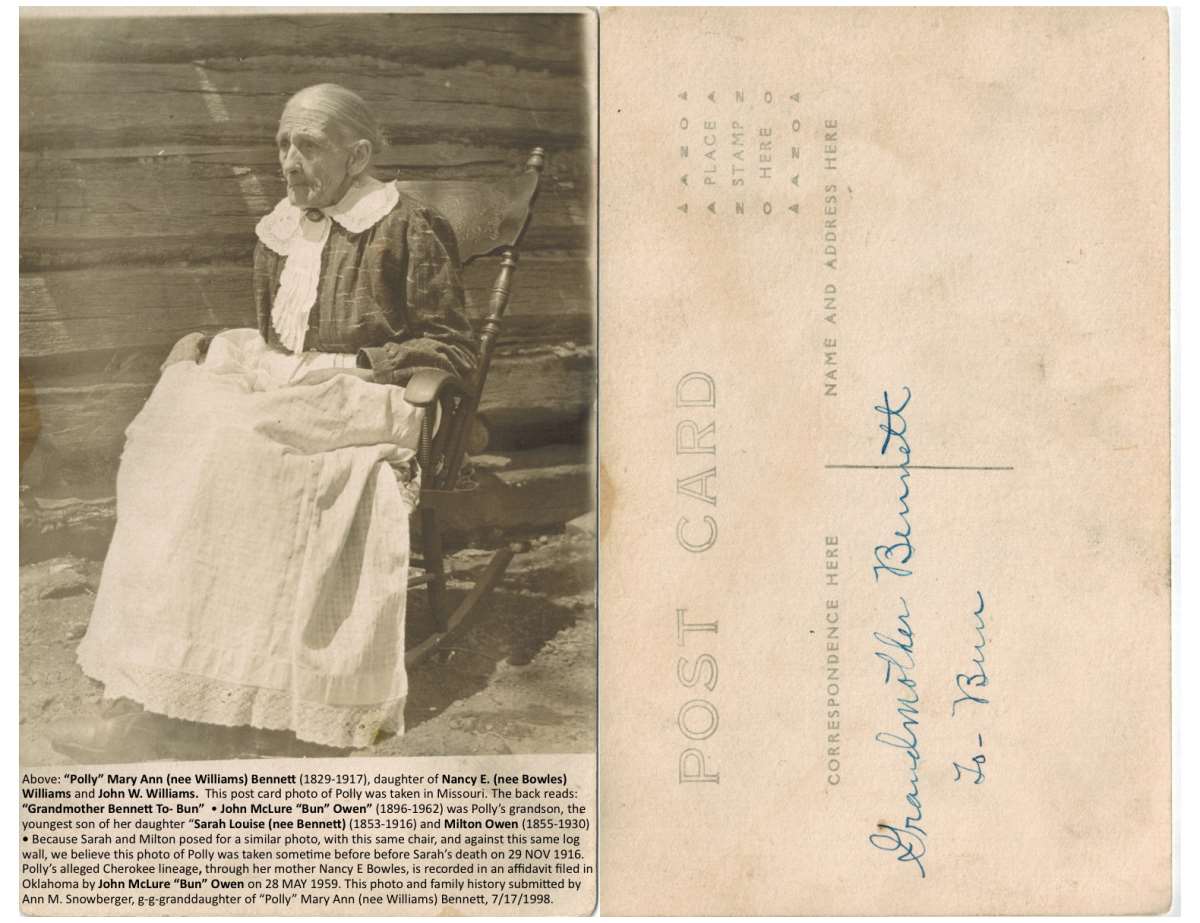 Above: “Polly” Mary Ann (nee Williams) Bennett (1829-1917), daughter of Nancy E. (nee Bowles)
Williams and John W. Williams. This post card photo of Polly was taken in Missouri. The back reads:
“Grandmother Bennett To- Bun” • John McLure “Bun” Owen” (1896-1962) was Polly’s grandson, the
youngest son of her daughter “Sarah Louise (nee Bennett) (1853-1916) and Milton Owen (1855-1930)
• Because Sarah and Milton posed for a similar photo, with this same chair, and against this same log
wall, we believe this photo of Polly was taken sometime before before Sarah’s death on 29 NOV 1916.
Polly’s alleged Cherokee lineage, through her mother Nancy E Bowles, is recorded in an affidavit filed in
Oklahoma by John McLure “Bun” Owen on 28 MAY 1959. This photo and family history submitted by
Ann M. Snowberger, g-g-granddaughter of “Polly” Mary Ann (nee Williams) Bennett, 7/17/1998.
POST CARD
AZO
PLACE
STAMP
HERE
AZO
CORRESPONDENCE HERE
NAME AND ADDRESS HERE
Grandmother Bennett
To- Bun